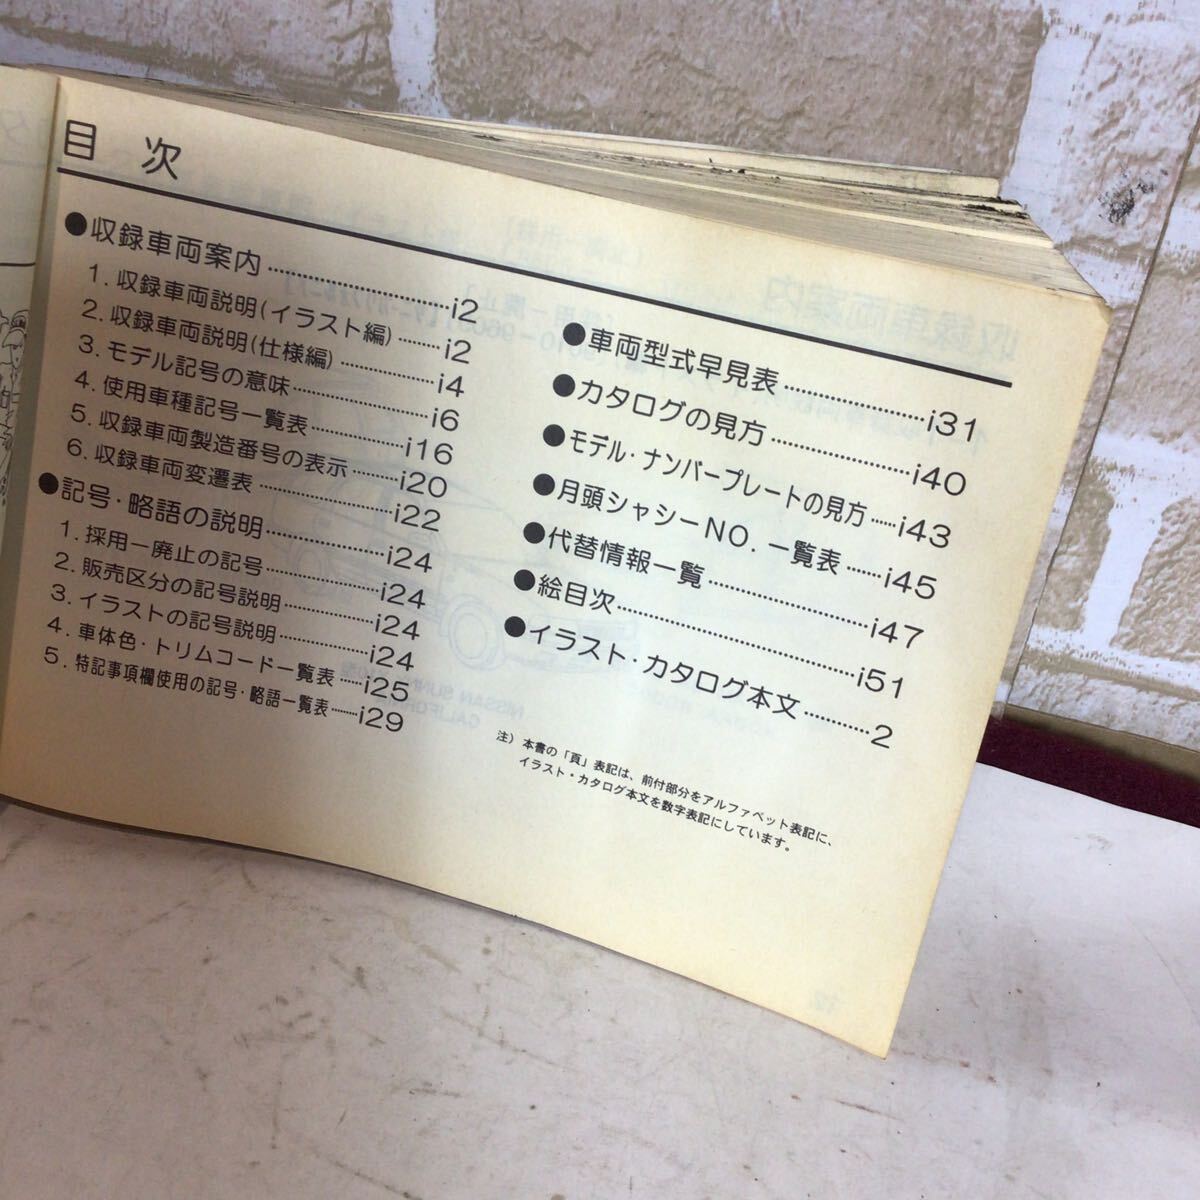 目 次
●収録車両案内……………………i2
1. 収録車両説明(イラスト編)……i2
2. 収録車両説明(仕様編)…………i4
3. モデル記号の意味………………i6
4. 使用車種記号一覧表……………i16
5. 収録車両製造番号の表示………i20
6. 収録車両変遷表…………………i22
●記号・略語の説明………………i24
1. 採用ー廃止の記号………………i24
2. 販売区分の記号説明……………i24
3. イラストの記号説明……………i24
4. 車体色・トリムコード一覧表……i25
5. 特記事項欄使用の記号・略語一覧表……i29
●車両型式早見表…………………i31
●カタログの見方…………………i40
●モデル・ナンバープレートの見方……i43
●月頭シャシーNO. 一覧表………i45
●代替情報一覧……………………i47
●絵目次……………………………i51
●イラスト・カタログ本文…………2
注) 本書の「頁」表記は、前付部分をアルファベット表記に、
イラスト・カタログ本文を数字表記にしています。